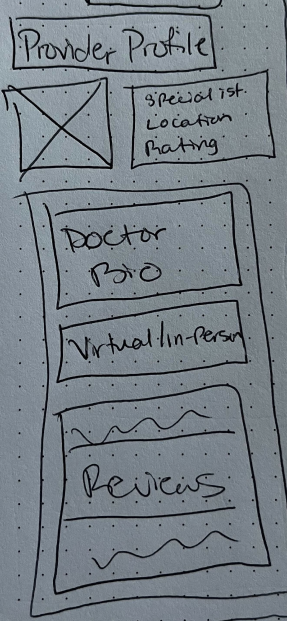 Provider Profile
Specialist
Location
Rating
Doctor
Bio
Virtual/in-Person
Reviews